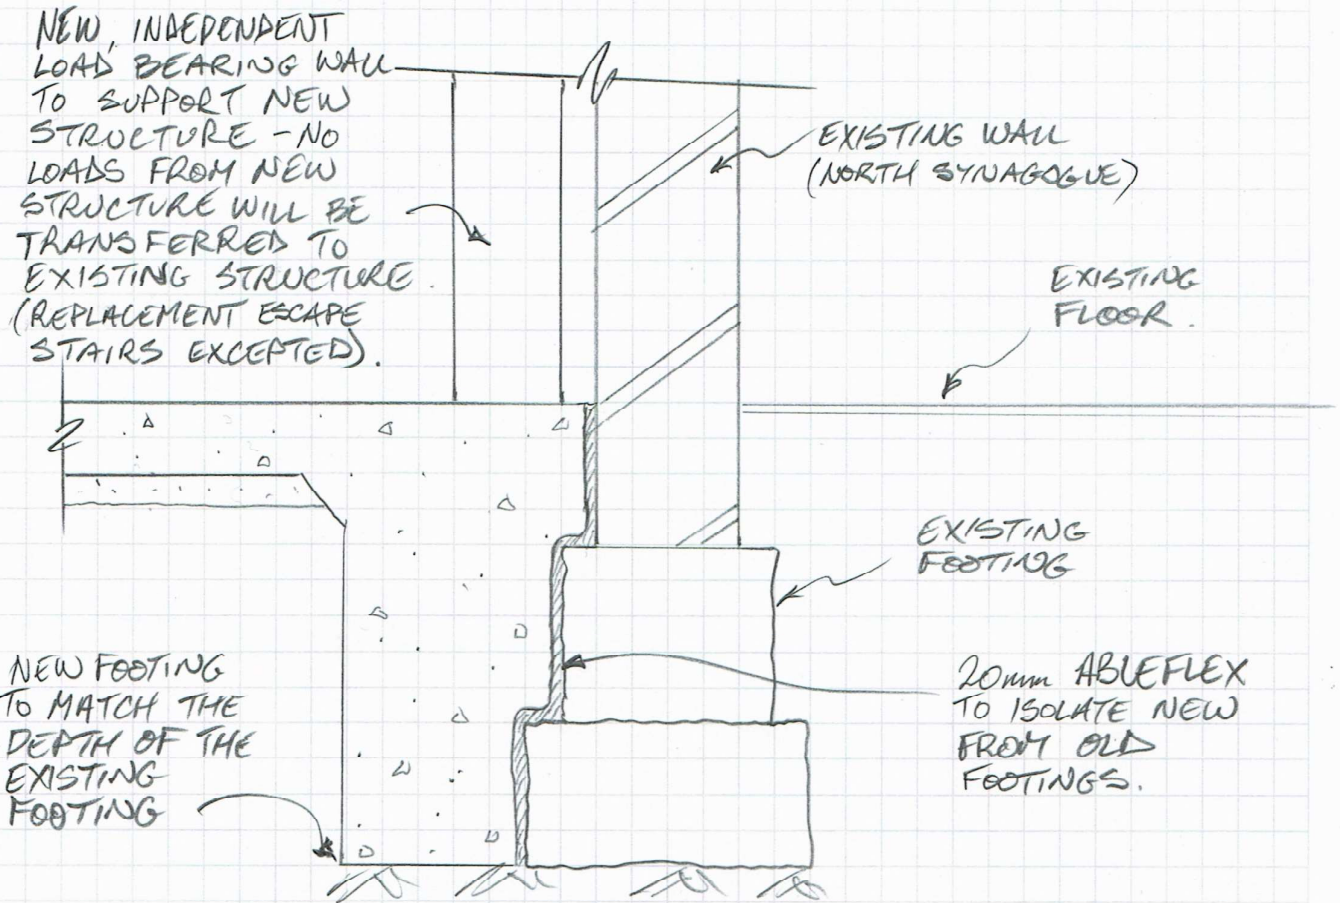 NEW, INDEPENDENT
LOAD BEARING WALL
TO SUPPORT NEW
STRUCTURE - NO
LOADS FROM NEW
STRUCTURE WILL BE
TRANSFERRED TO
EXISTING STRUCTURE.
(REPLACEMENT ESCAPE
STAIRS EXCEPTED).
EXISTING WALL
(NORTH SYNAGOGUE)
EXISTING
FLOOR.
EXISTING
FOOTING
NEW FOOTING
TO MATCH THE
DEPTH OF THE
EXISTING
FOOTING
20mm ABLEFLEX
TO ISOLATE NEW
FROM OLD
FOOTINGS.